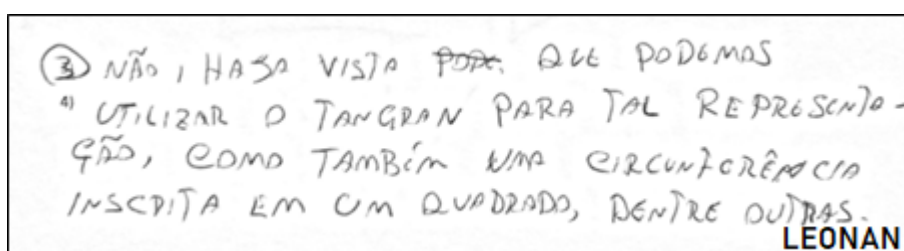 3 NÃO, HAJA VISTA PODE. QUE PODEMOS
4) UTILIZAR O TANGRAN PARA TAL REPRESENTA-
ÇÃO, COMO TAMBÉM UMA CIRCUNFERÊNCIA
INSCRITA EM UM QUADRADO, DENTRE OUTRAS.
LEONAN